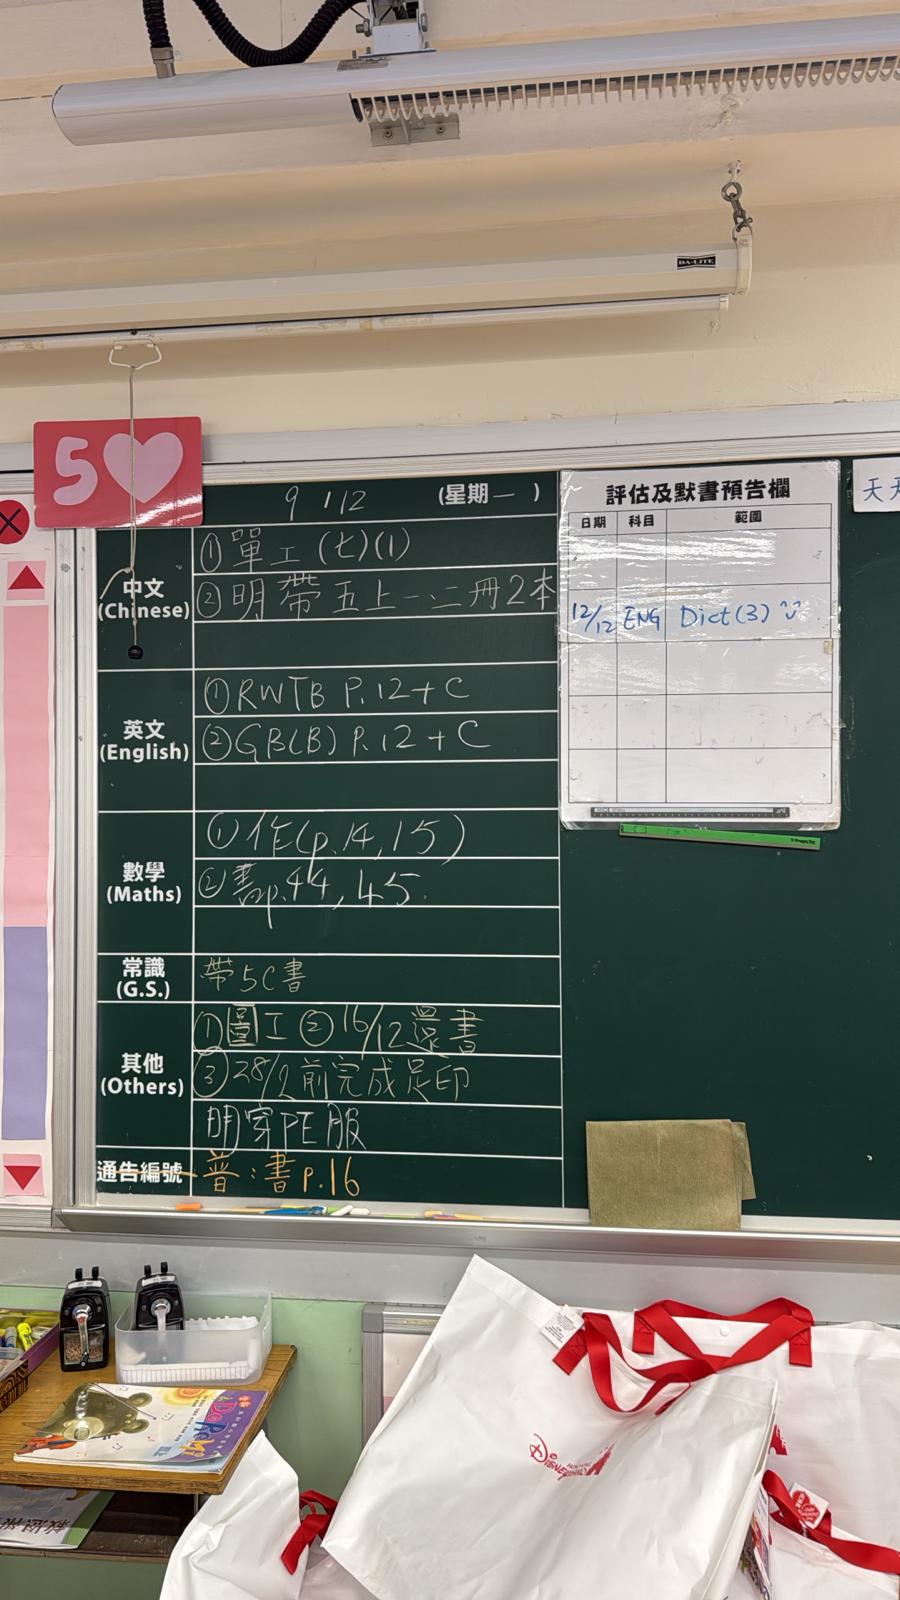 DA-LITE
5
9 1/12 (星期一)
中文
(Chinese)
①單工(七)(1)
②明帶五上一、二冊2本
英文
(English)
①RWTB P.12+C
②GB(B) P.12+C
數學
(Maths)
①作(p.14,15)
②書p.44,45.
常識
(G.S.)
帶5C書
其他
(Others)
①圖工 ②16/12還書
③28/2前完成足印
明穿PE服
通告編號
普:書p.16
評估及默書預告欄
日期 科目 範圍
12/12 ENG Dict(3)
天天
DoReMi
Disneyland